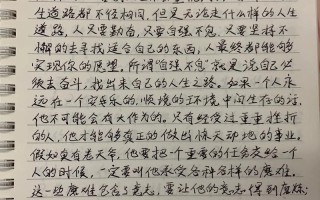 生道路都不径相同，但是无论走什么样的人生
道路，人只要勤奋，只要自强不息，只要坚持不
懈的去寻找适合自己的东西，人最终都能够
实现你的愿望。所谓"自强不息"就是说自己必
须去奋斗，找出来自己的人生之路。如果一个人永
远在一个安乐的、顺境的环境中间生存的话，
他不可能会有大作为的。只有经受过重重挫折
的人，他才能够真正的做出惊天动地的事业。
假如真有老天爷，他要把一个重要的任务交给一个
人的时候，一定要叫他承受各种各样的磨难。
这一些磨难包含了意志，要让他的意志得到磨炼；